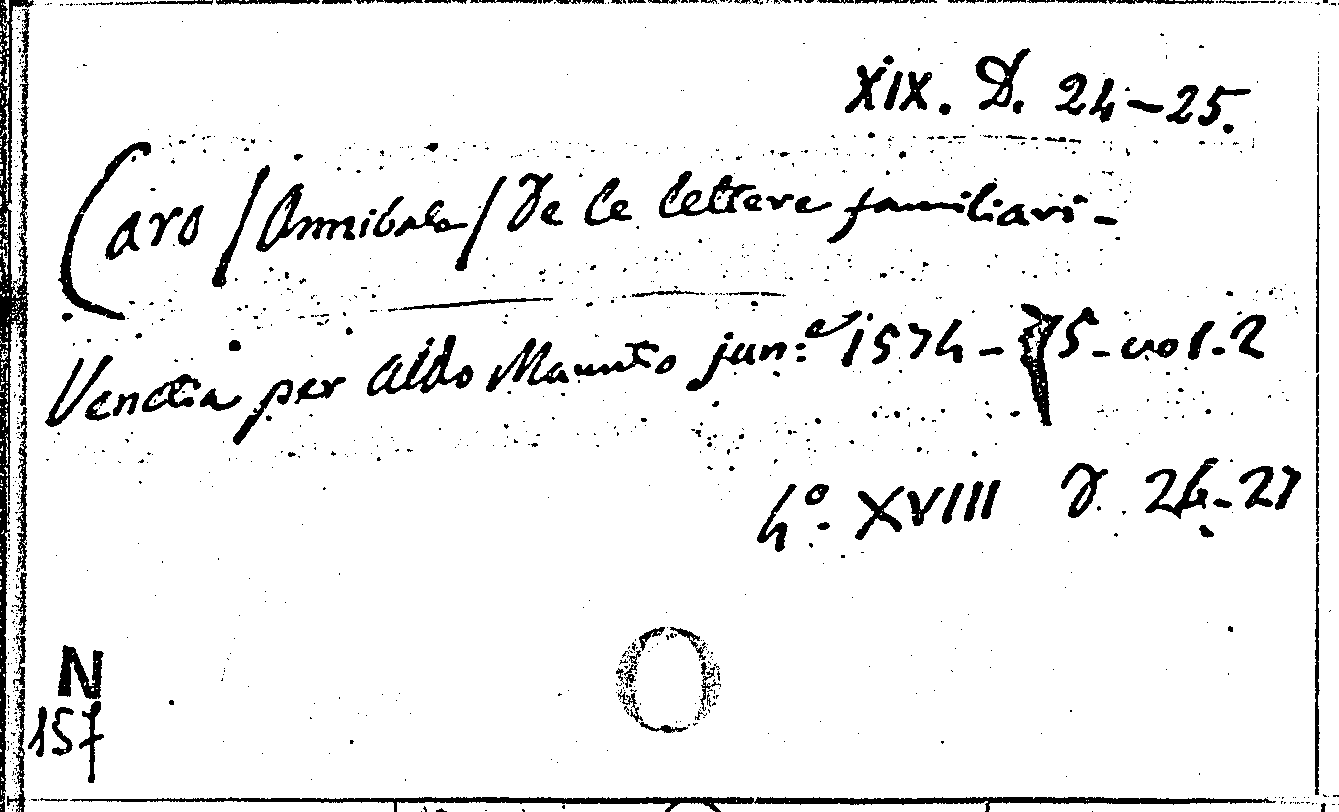 XIX. D. 24-25.
Caro /Annibale/ De le lettere familiari -
Venetia per Aldo Manutio jun:e 1574 - 75 - vol. 2
4o. XVIII D. 26-27
N
157